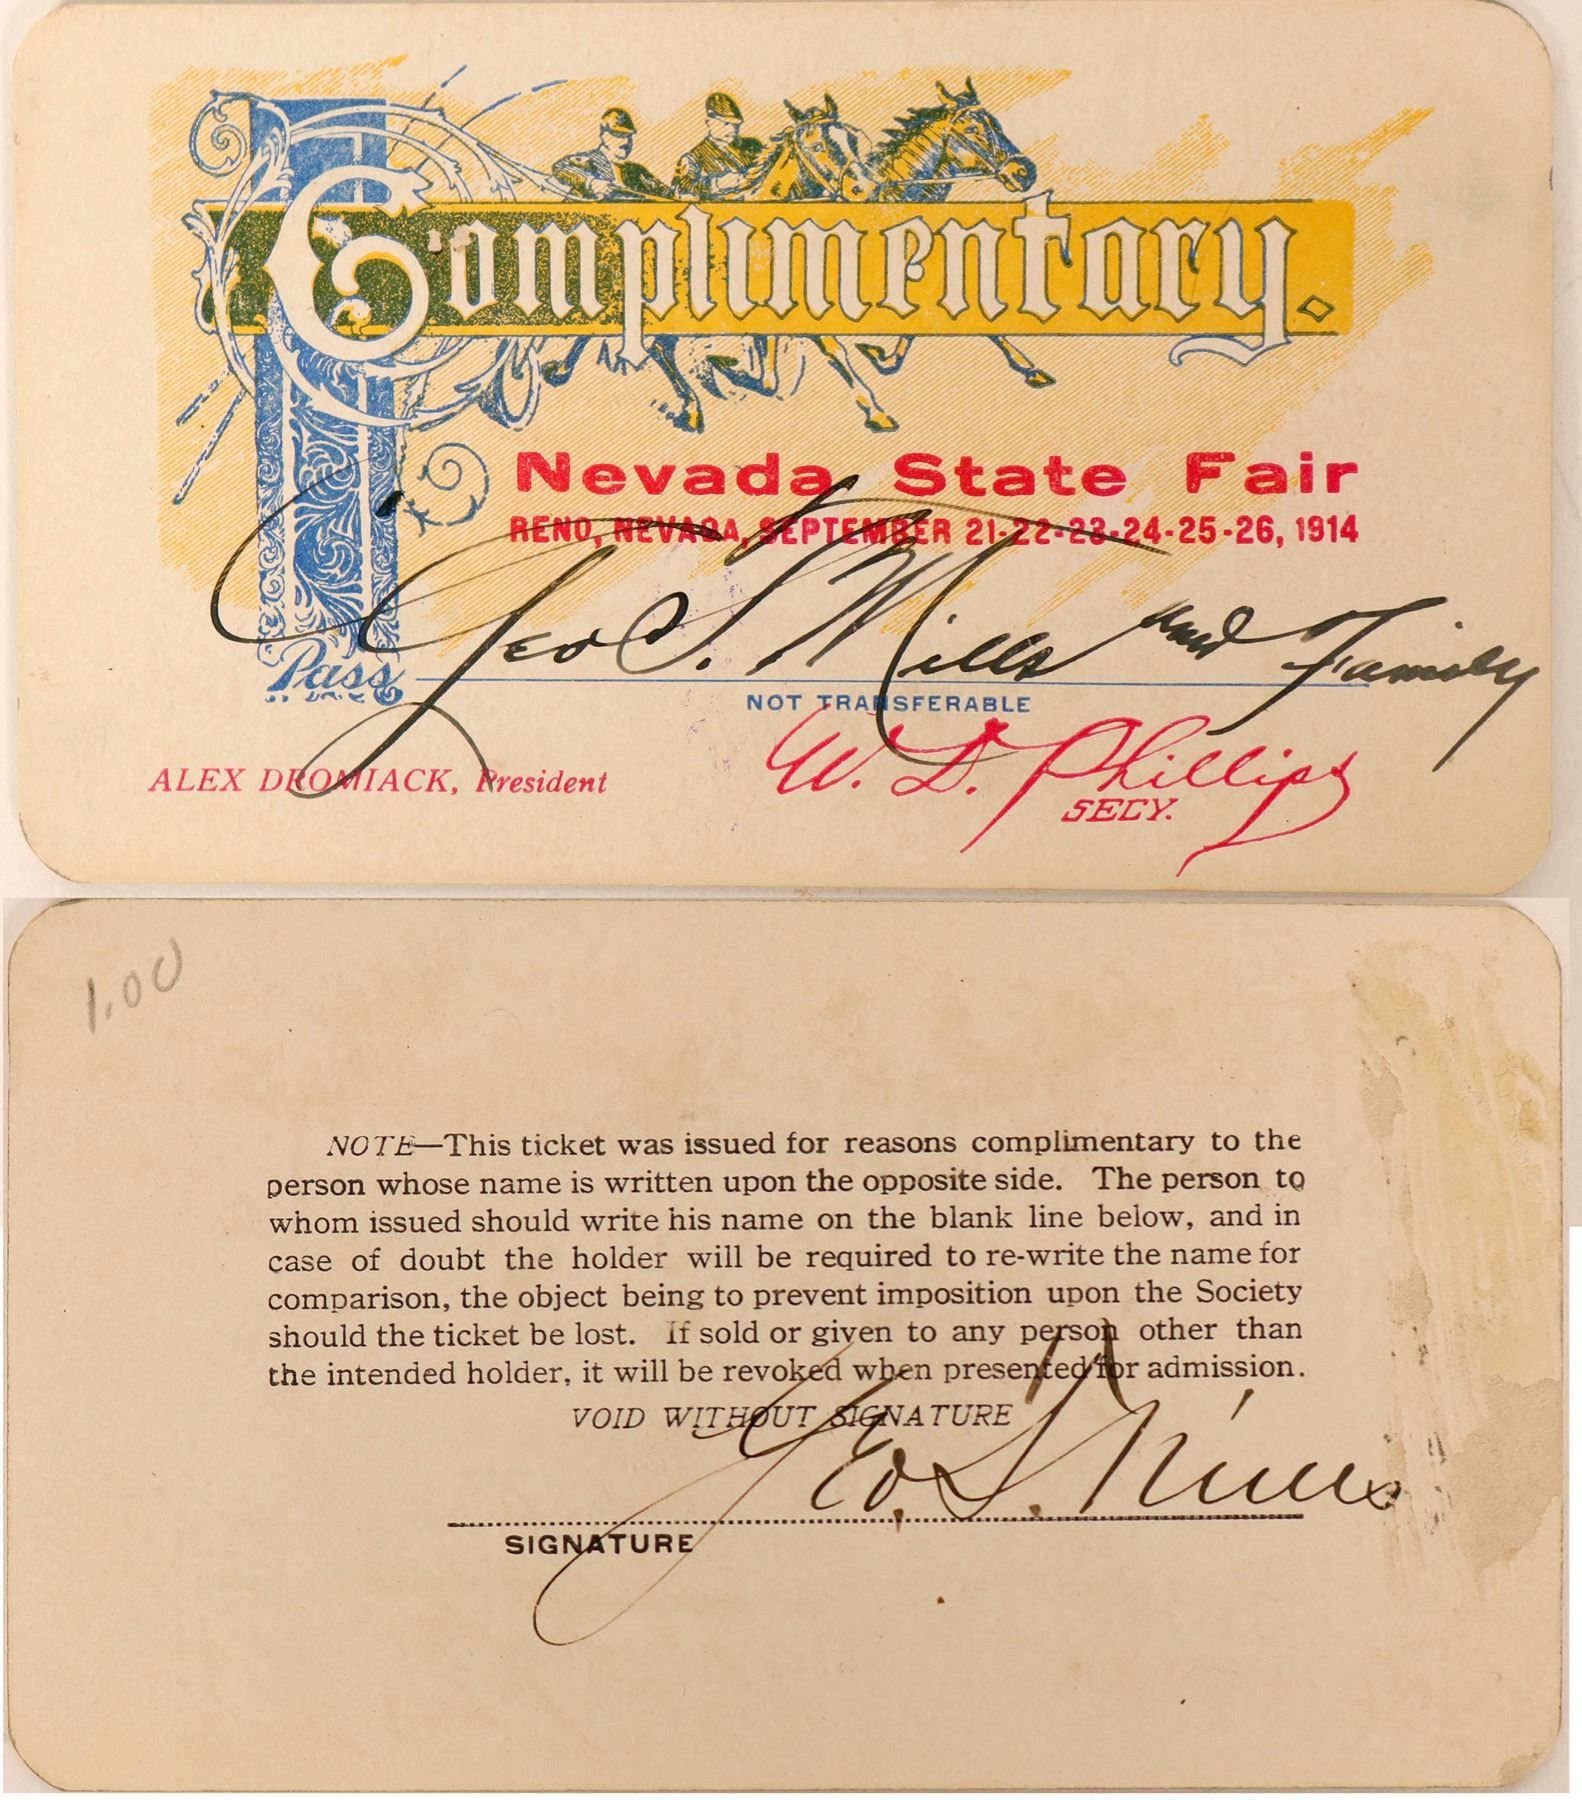 Complimentary.
Nevada State Fair
RENO, NEVADA, SEPTEMBER 21-22-23-24-25-26, 1914
Pass Geo. S. Mills and Family
NOT TRANSFERABLE
ALEX DROMIACK, President
W. D. Phillips
SECY.
1.00
NOTE—This ticket was issued for reasons complimentary to the
person whose name is written upon the opposite side. The person to
whom issued should write his name on the blank line below, and in
case of doubt the holder will be required to re-write the name for
comparison, the object being to prevent imposition upon the Society
should the ticket be lost. If sold or given to any person other than
the intended holder, it will be revoked when presented for admission.
VOID WITHOUT SIGNATURE
Geo. S. Mills
SIGNATURE